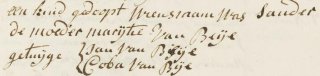 een kind gedoopt wiens naam was Sander
de moeder marijtie van Beije
getuijge Jan van Beije
Coba van Bije